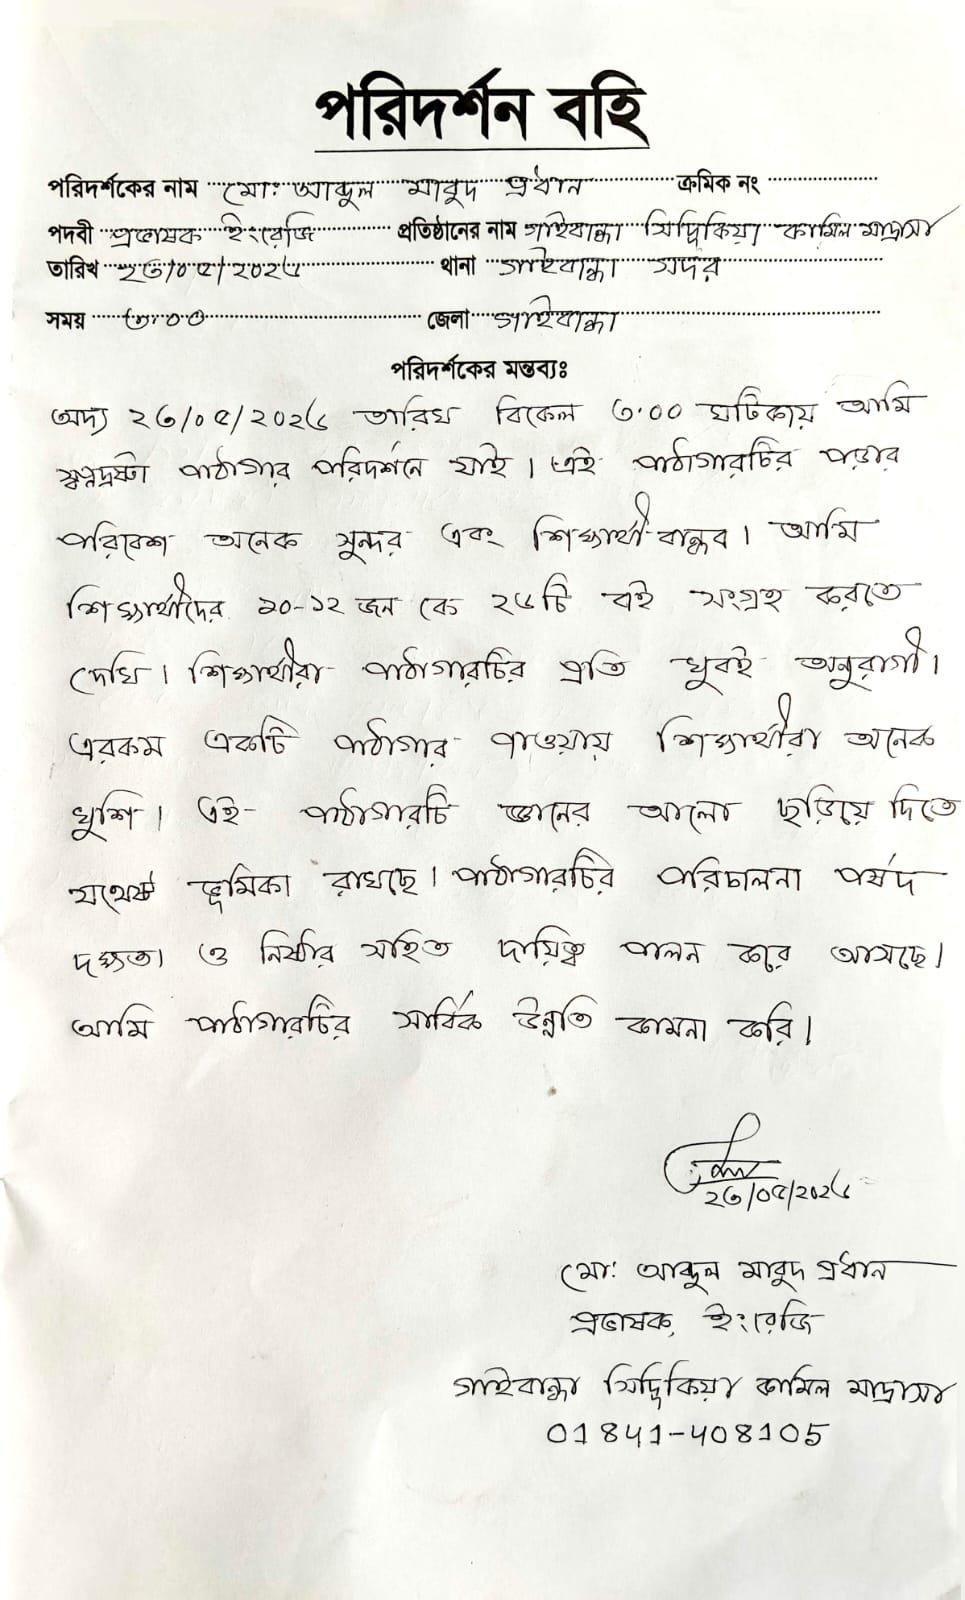 পরিদর্শন বহি
পরিদর্শকের নাম মো: আব্দুল মাবুদ প্রধান ক্রমিক নং
পদবী প্রভাষক ইংরেজি প্রতিষ্ঠানের নাম গাইবান্ধা সিদ্দিকিয়া কামিল মাদ্রাসা
তারিখ ২৩/০৫/২০২৫ থানা গাইবান্ধা সদর
সময় ৩.০০ জেলা গাইবান্ধা
পরিদর্শকের মন্তব্যঃ
অদ্য ২৩/০৫/২০২৫ তারিখ বিকেল ৩.০০ ঘটিকায় আমি
স্বপ্নদ্রষ্টা পাঠাগার পরিদর্শনে যাই। এই পাঠাগারটির পড়ার
পরিবেশ অনেক সুন্দর এবং শিক্ষার্থী-বান্ধব। আমি
শিক্ষার্থীদের ১০-১২ জন কে ২৫টি বই সংগ্রহ করতে
দেখি। শিক্ষার্থীরা পাঠাগারটির প্রতি খুবই অনুরাগী।
এরকম একটি পাঠাগার পাওয়ায় শিক্ষার্থীরা অনেক
খুশি। এই পাঠাগারটি জ্ঞানের আলো ছড়িয়ে দিতে
যথেষ্ট ভূমিকা রাখছে। পাঠাগারটির পরিচালনা পর্ষদ
দক্ষতা ও নিষ্ঠার সহিত দায়িত্ব পালন করে আসছে।
আমি পাঠাগারটির সার্বিক উন্নতি কামনা করি।
২৩/০৫/২০২৫
মো: আব্দুল মাবুদ প্রধান
প্রভাষক, ইংরেজি
গাইবান্ধা সিদ্দিকিয়া কামিল মাদ্রাসা
01841-408105